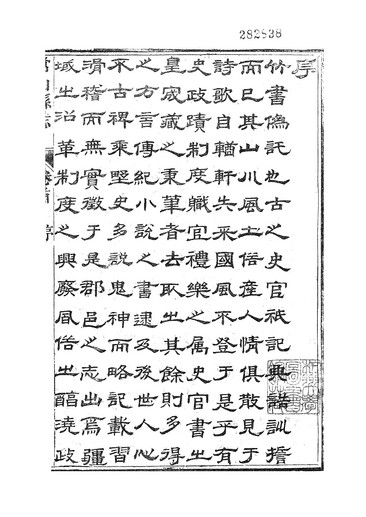 282838
序
竹書偽託也古之史官祇記典誥訓
而已其山川風土俗產人情俱散見于
詩歌自輶軒失采國風不登于是乎有
史政蹟制度職官禮樂之屬史官書之
皇宬藏之秉筆者去取之其餘則多得
之方言傳紀小說之書逮及後世人心
不古稗乘野史多說鬼神而略記載習
滑稽而無實徵于是郡邑之志出為疆
域之沿革制度之興廢風俗之醇澆政
縣志 卷首 序